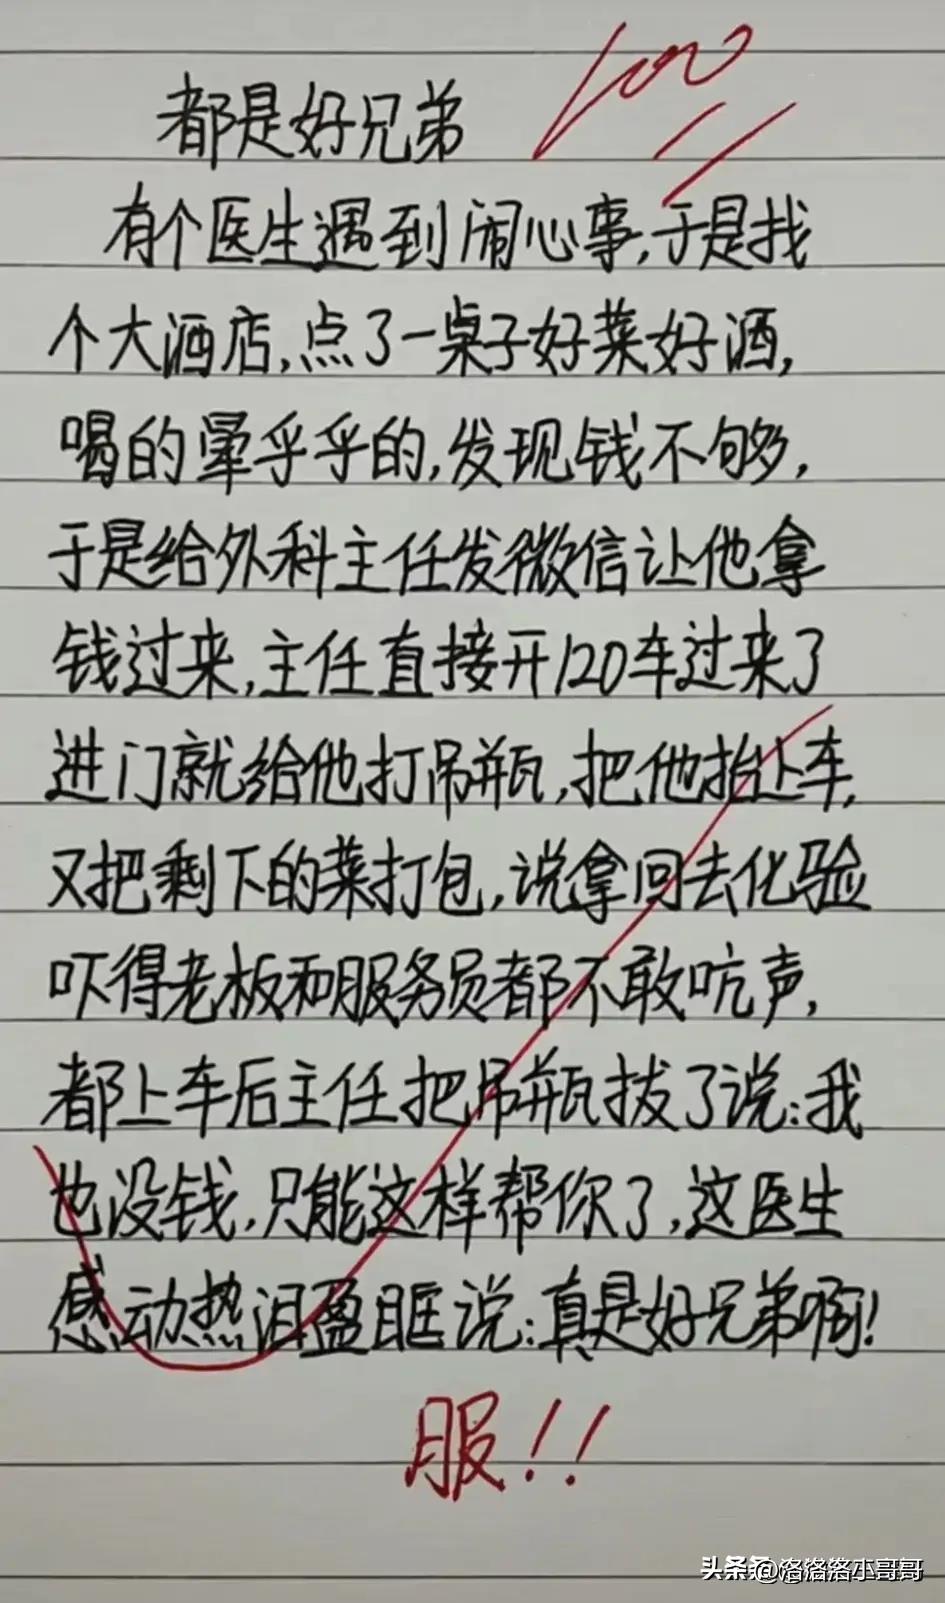 100
都是好兄弟
有个医生遇到闹心事,于是找
个大酒店,点了一桌子好菜好酒,
喝的晕乎乎的,发现钱不够,
于是给外科主任发微信让他拿
钱过来,主任直接开120车过来了
进门就给他打吊瓶,把他抬上车,
又把剩下的菜打包,说拿回去化验
吓得老板和服务员都不敢吭声,
都上车后主任把吊瓶拔了说:我
也没钱,只能这样帮你了,这医生
感动热泪盈眶说:真是好兄弟啊!
服!!
头条 @洛洛洛小哥哥